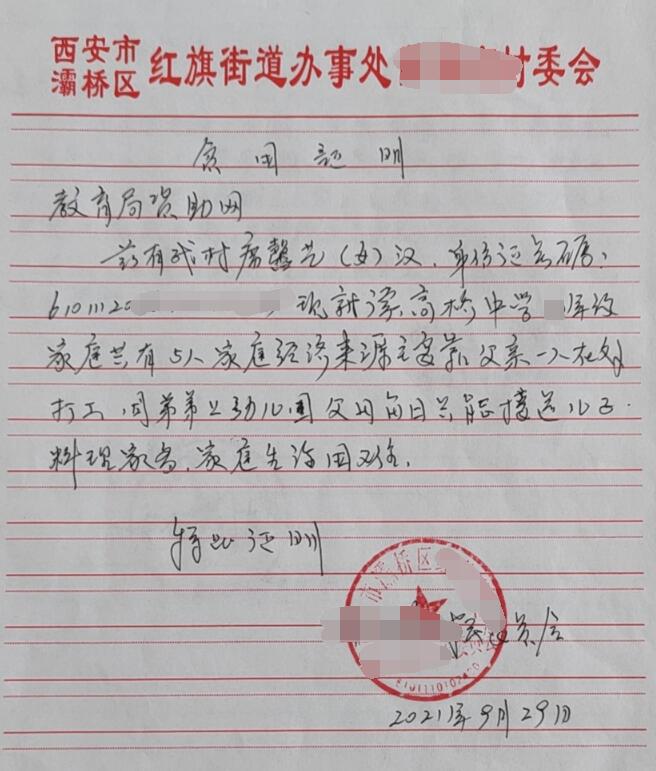 西安市
灞桥区 红旗街道办事处 村委会
贫困证明
教育局资助网
兹有我村席馨艺(女)汉,身份证号码:
61011120 现就读高桥中学 年级
家庭共有5人家庭经济来源主要靠父亲一人在外
打工,因弟弟上幼儿园父母每日只能接送儿子.
料理家务,家庭生活困难.
特此证明
市灞桥区
委员会
2021年9月29日